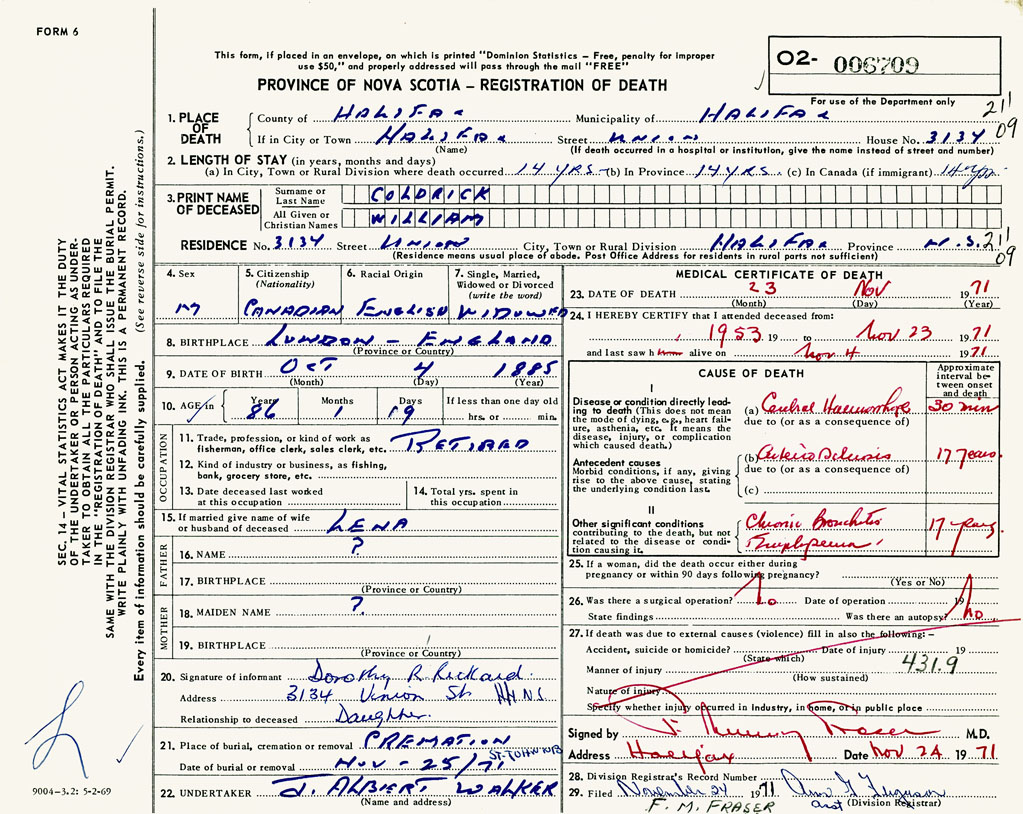 FORM 6
This form, if placed in an envelope, on which is printed "Dominion Statistics – Free, penalty for improper
use $50," and properly addressed will pass through the mail "FREE"
PROVINCE OF NOVA SCOTIA – REGISTRATION OF DEATH
02- 006709
For use of the Department only
211
09
1. PLACE OF DEATH
County of HALIFAX Municipality of HALIFAX
If in City or Town HALIFAX Street UNION House No. 3134
(Name) (If death occurred in a hospital or institution, give the name instead of street and number)
2. LENGTH OF STAY (in years, months and days)
(a) In City, Town or Rural Division where death occurred 14 YRS (b) In Province 14 YRS. (c) In Canada (if immigrant) 14 yrs
3. PRINT NAME OF DECEASED
Surname or Last Name COLDRICK
All Given or Christian Names WILLIAM
RESIDENCE No. 3134 Street UNION City, Town or Rural Division HALIFAX Province N.S. 211
09
(Residence means usual place of abode. Post Office Address for residents in rural parts not sufficient)
4. Sex
M
5. Citizenship
(Nationality)
CANADIAN
6. Racial Origin
ENGLISH
7. Single, Married,
Widowed or Divorced
(write the word)
WIDOWED
8. BIRTHPLACE LONDON – ENGLAND
(Province or Country)
9. DATE OF BIRTH OCT 4 1885
(Month) (Day) (Year)
10. AGE in Years 86 Months 1 Days 19 If less than one day old
hrs. or min.
OCCUPATION
11. Trade, profession, or kind of work as
fisherman, office clerk, sales clerk, etc. RETIRED
12. Kind of industry or business, as fishing,
bank, grocery store, etc.
13. Date deceased last worked
at this occupation
14. Total yrs. spent in
this occupation
15. If married give name of wife
or husband of deceased LENA
FATHER
16. NAME ?
17. BIRTHPLACE
(Province or Country)
MOTHER
18. MAIDEN NAME ?
19. BIRTHPLACE
(Province or Country)
20. Signature of informant Dorothy R Rickard
Address 3134 Union St Hfx N.S
Relationship to deceased Daughter.
21. Place of burial, cremation or removal CREMATION
ST. JOHN NB
Date of burial or removal NOV - 25/71
22. UNDERTAKER J. ALBERT WALKER
(Name and address)
MEDICAL CERTIFICATE OF DEATH
23. DATE OF DEATH 23 NOV 1971
(Month) (Day) (Year)
24. I HEREBY CERTIFY that I attended deceased from:
1953 19 to Nov 23 1971
and last saw h him alive on Nov 4 1971
CAUSE OF DEATH
Approximate
interval be-
tween onset
and death
I
Disease or condition directly lead-
ing to death (This does not mean
the mode of dying, e.g., heart fail-
ure, asthenia, etc. It means the
disease, injury, or complication
which caused death.)
(a) Cerebral Haemorrhage 30 min
due to (or as a consequence of)
Antecedent causes
Morbid conditions, if any, giving
rise to the above cause, stating
the underlying condition last.
(b) Arteriosclerosis 17 years
due to (or as a consequence of)
(c)
II
Other significant conditions
contributing to the death, but not
related to the disease or condi-
tion causing it.
Chronic Bronchitis 17 years
Emphysema
25. If a woman, did the death occur either during
pregnancy or within 90 days following pregnancy?
(Yes or No)
26. Was there a surgical operation? No Date of operation 19
State findings Was there an autopsy? No
27. If death was due to external causes (violence) fill in also the following: –
Accident, suicide or homicide? Date of injury 19
(State which) 431.9
Manner of injury
(How sustained)
Nature of injury
Specify whether injury occurred in industry, in home, or in public place
Signed by J. Murray Fraser M.D.
Address Halifax Date Nov 24 1971
28. Division Registrar's Record Number
29. Filed November 24 1971 Ann G Ferguson
asst (Division Registrar)
F. M. FRASER
SEC. 14 – VITAL STATISTICS ACT MAKES IT THE DUTY
OF THE UNDERTAKER OR PERSON ACTING AS UNDER-
TAKER TO OBTAIN ALL THE PARTICULARS REQUIRED
IN THE "REGISTRATION OF DEATH" AND TO FILE THE
SAME WITH THE DIVISION REGISTRAR WHO SHALL ISSUE THE BURIAL PERMIT.
WRITE PLAINLY WITH UNFADING INK. THIS IS A PERMANENT RECORD.
Every item of information should be carefully supplied. (See reverse side for instructions.)
9004-3.2: 5-2-69